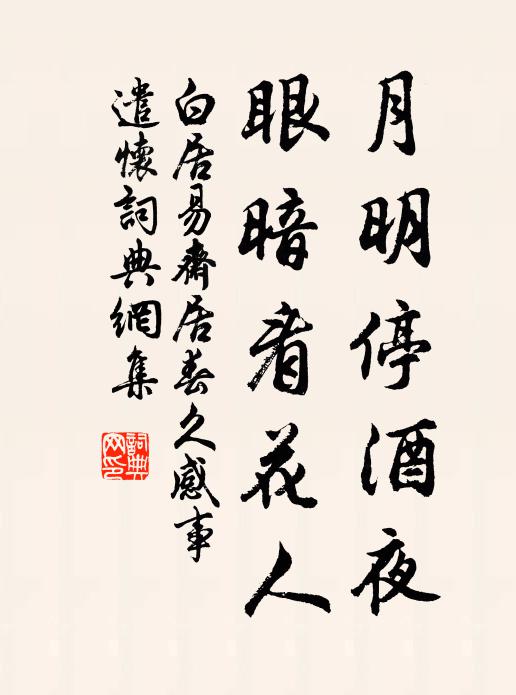 月明停酒夜
眼暗看花人
白居易齋居春久感事
遣懷詞典網集
詞典網印